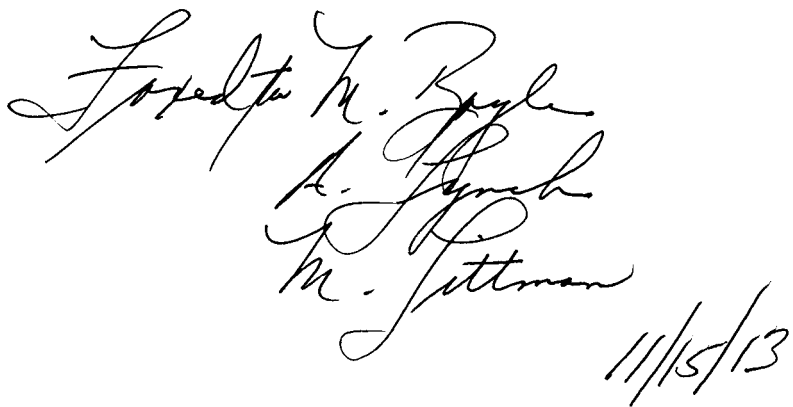 Foxed to M. Boyle
A. Lynch
M. Littman
11/15/13